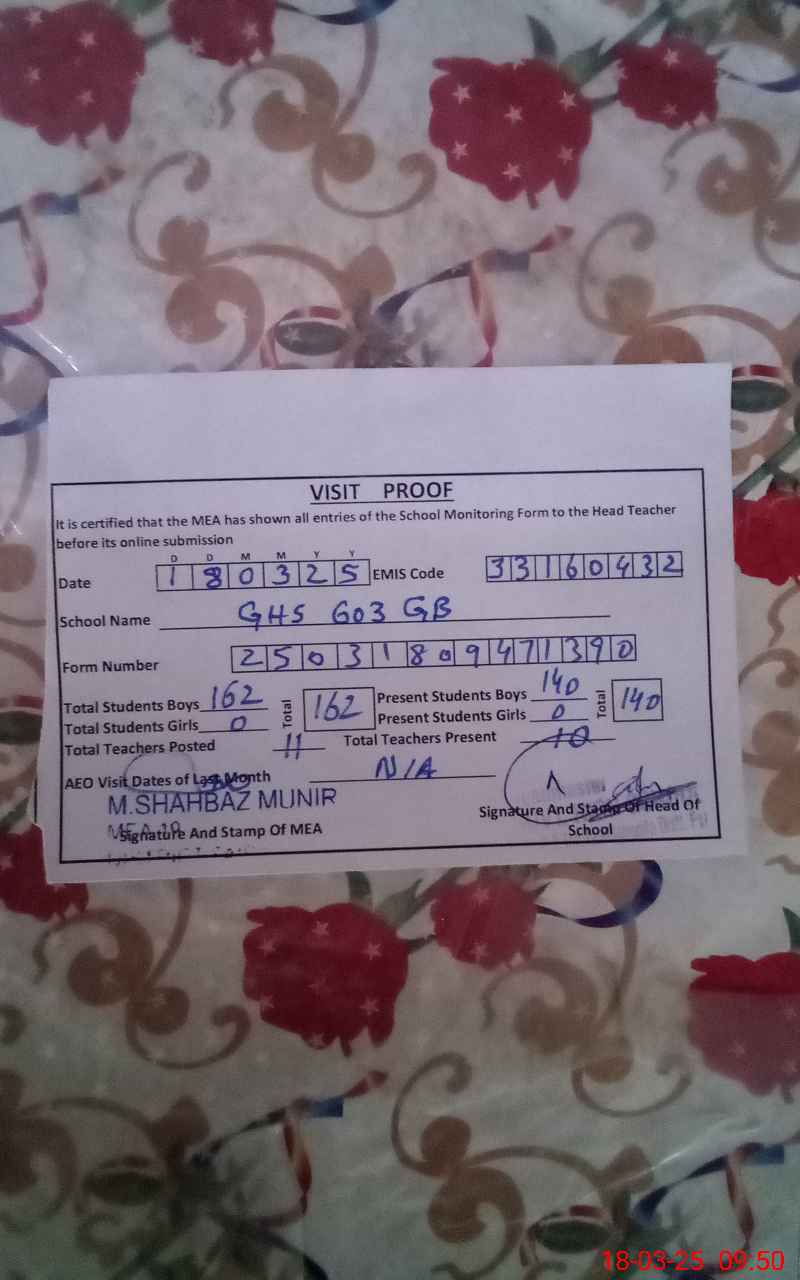 VISIT PROOF
It is certified that the MEA has shown all entries of the School Monitoring Form to the Head Teacher
before its online submission
D D M M Y Y
Date 1 8 0 3 2 5 EMIS Code 3 3 1 6 0 4 3 2
School Name GHS 603 GB
Form Number 2 5 0 3 1 8 0 9 4 7 1 3 9 0
Total Students Boys 162 Total 162 Present Students Boys 140 Total 140
Total Students Girls 0 Present Students Girls 0
Total Teachers Posted 11 Total Teachers Present 10
AEO Visit Dates of Last Month N/A
M.SHAHBAZ MUNIR
Signature And Stamp Of MEA
Signature And Stamp Of Head Of
School
18-03-25 09:50